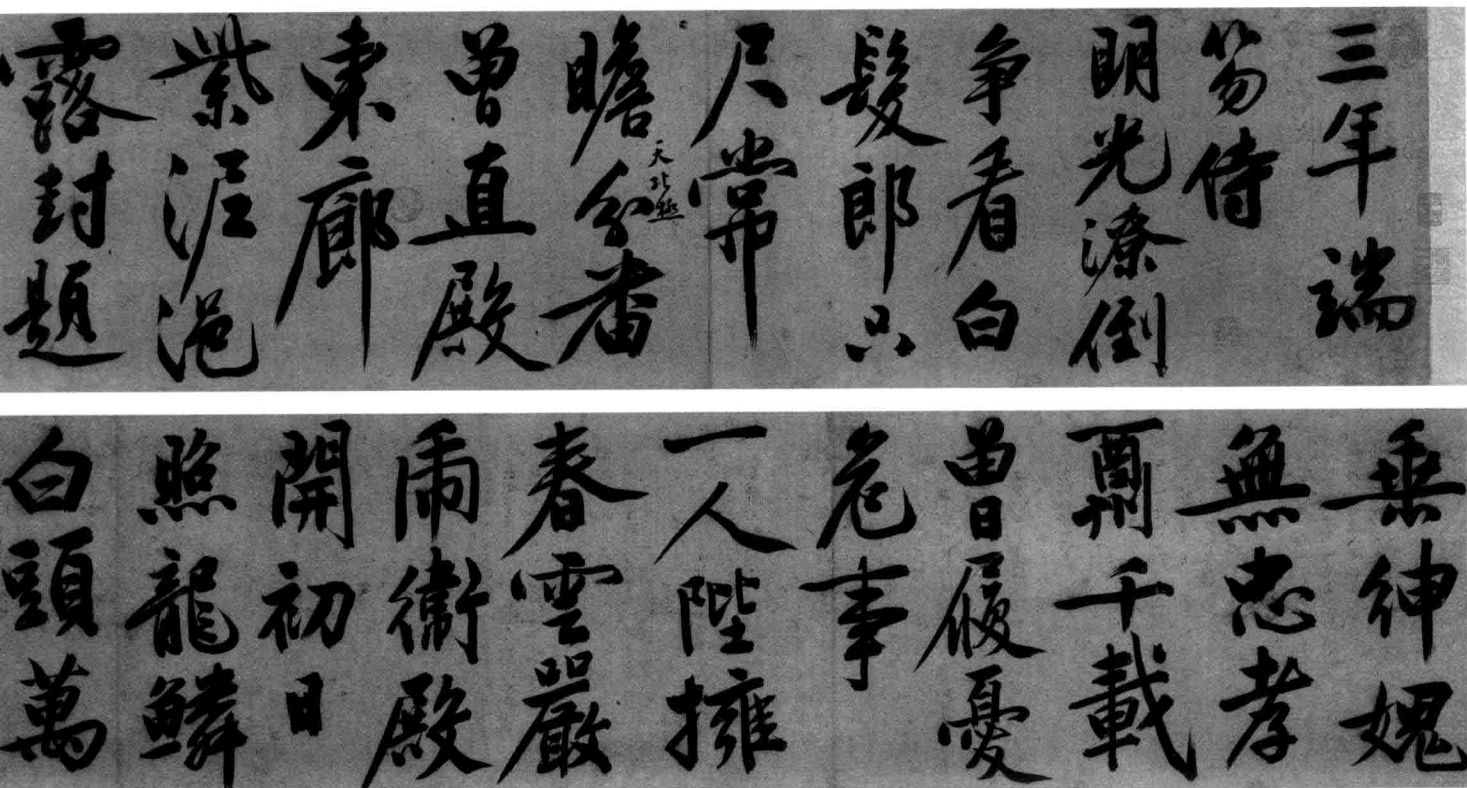 三年端
笏侍
明光潦倒
争看白
髮郎只
尺常
天北極
瞻分番
曾直殿
東廊
紫泥浥
露封題
垂紳媿
無忠孝
酬千載
曾履憂
危事
一人陛擁
春雲嚴
虎衛殿
開初日
照龍鱗
白頭萬